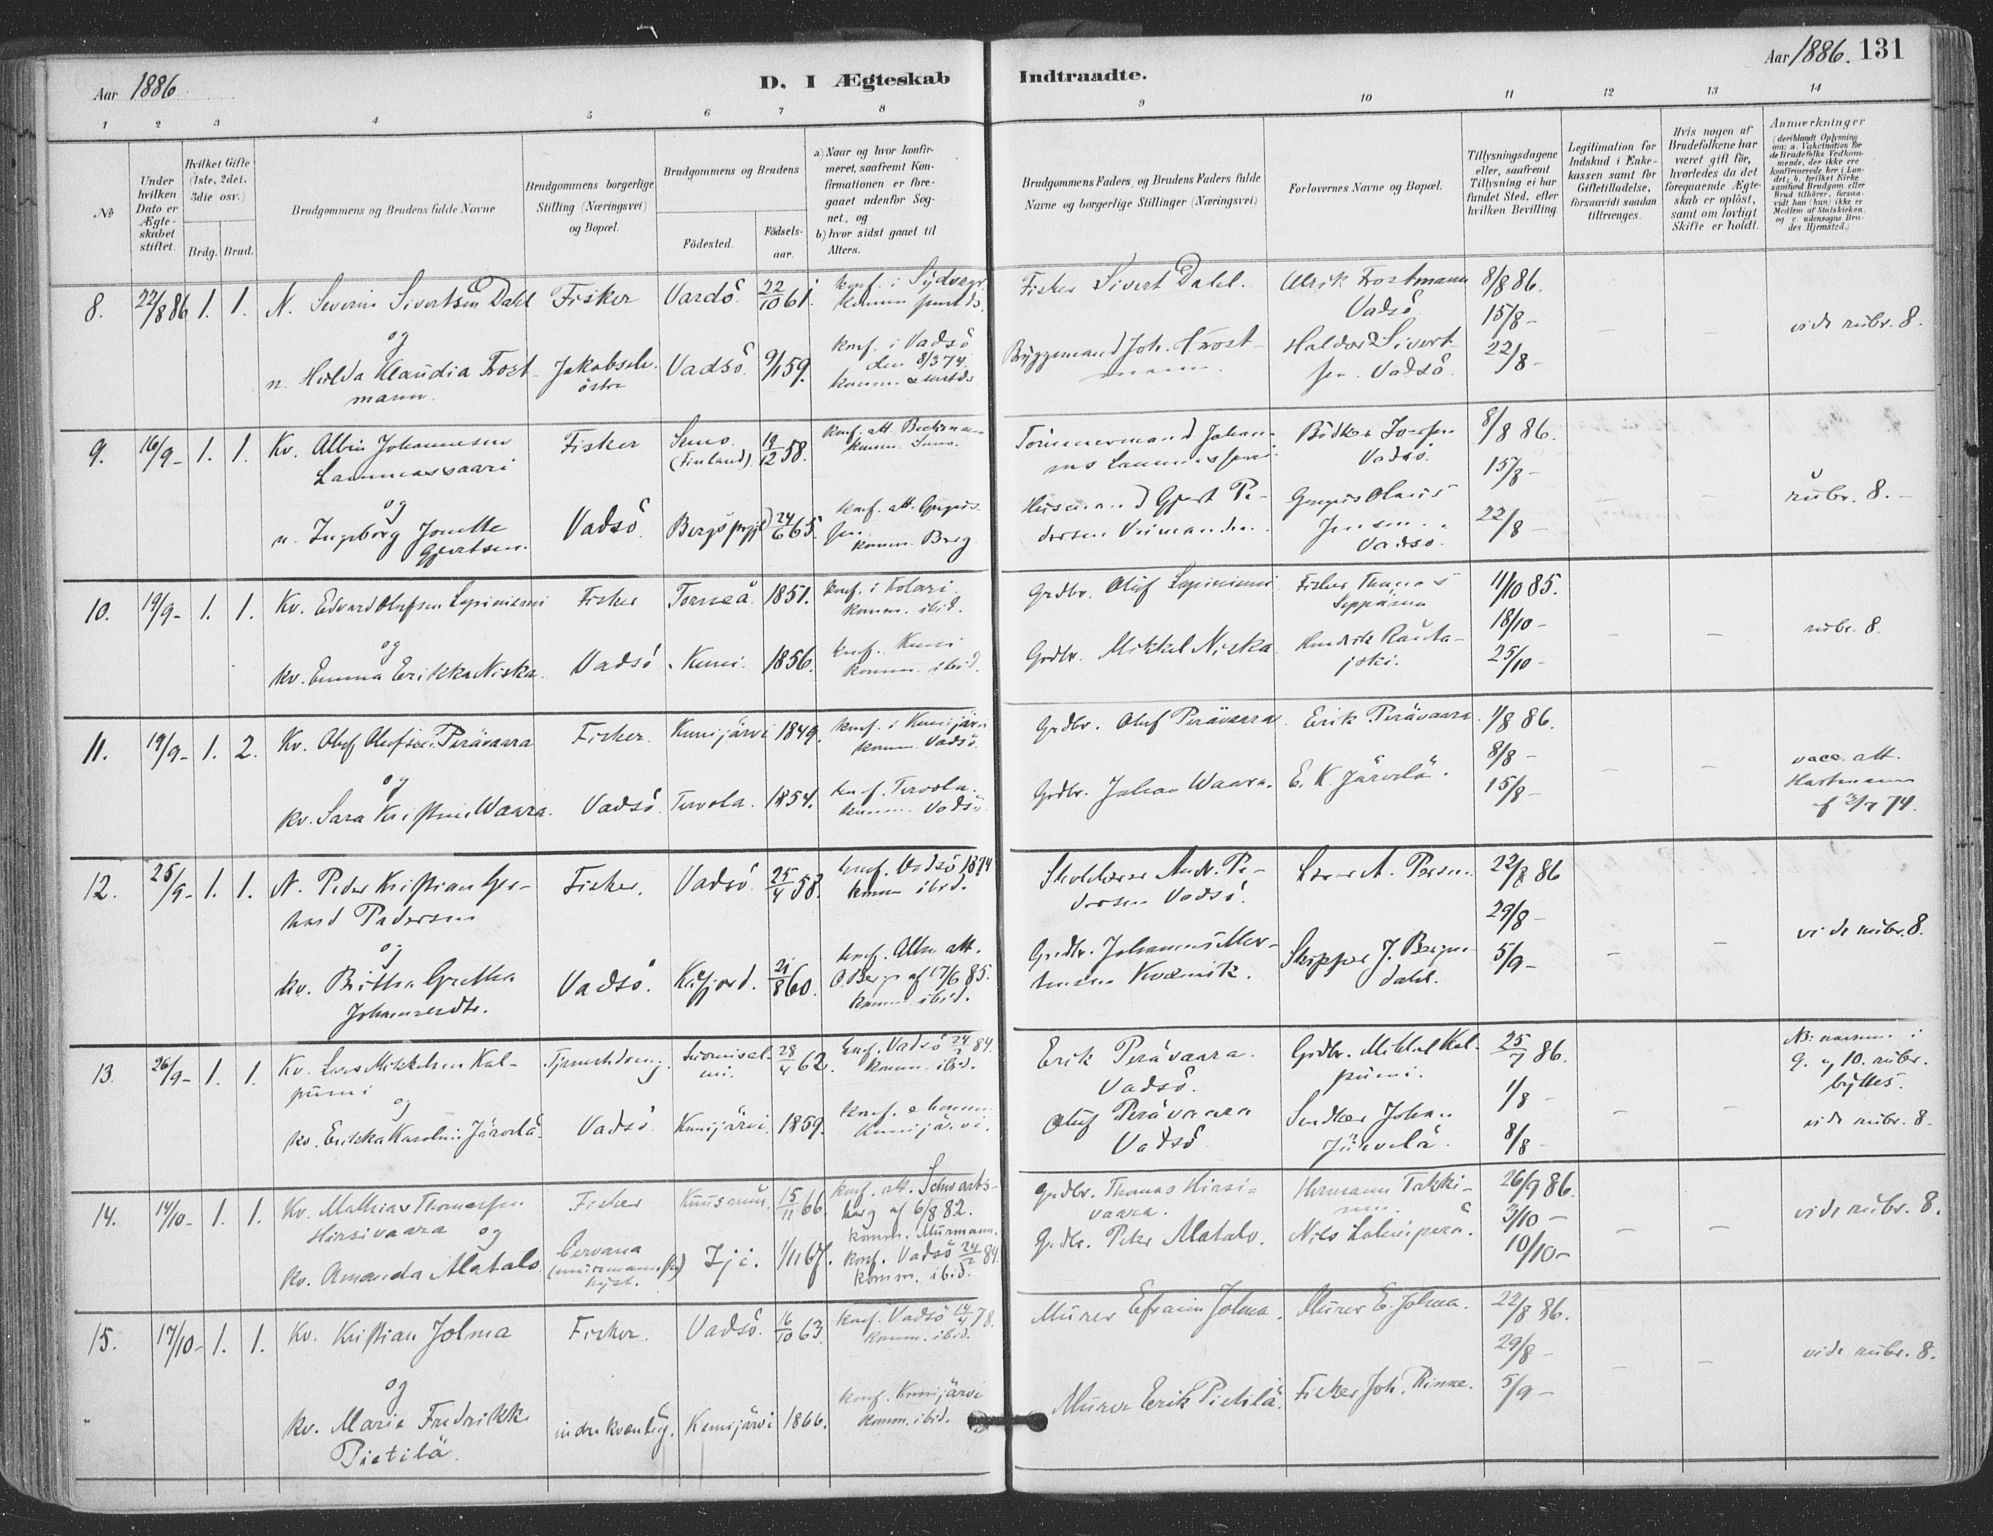 Aar 1886.
D. I Ægteskab Indtraadte.
Aar 1886. 131
1 2 3 4 5 6 7 8 9 10 11 12 13 14
No
Under hvilken Dato er Ægteskabet stiftet.
Hvilket Gifte (1ste, 2det, 3die osv.)
Brdg. Brud.
Brudgommens og Brudens fulde Navne
Brudgommens borgerlige Stilling (Næringsvei) og Bopæl.
Brudgommens og Brudens
Födested.
Födsels-aar.
a) Naar og hvor konfirmeret, saafremt Konfirmationen er foregaaet udenfor Sognet, og
b) hvor sidst gaaet til Alters.
Brudgommens Faders, og Brudens Faders fulde Navne og borgerlige Stillinger (Næringsvei)
Forlovernes Navne og Bopæl.
Tillysningsdagene eller, saafremt Tillysning ei har fundet Sted, efter hvilken Bevilling.
Legitimation for Indskud i Enkekassen samt for Giftetilladelse, forsaavidt saadan tiltrænges.
Hvis nogen af Brudefolkene har været gift för, hvorledes da det foregaaende Ægteskab er oplöst, samt om lovligt Skifte er holdt.
Anmærkninger
(deriblandt Oplysning om: a. Vakcination for de Brudefolks Vedkommende, der ikke ere konfirmerede her i Landet; b. hvilket Kirkesamfund Brudgom eller Brud tilhörer, forsaavidt han (hun) ikke er Medlem af Statskirken, og c. udensogns Brudes Hjemsted.)
8. 22/8 86 1. 1. N. Severin Sivertsen Dahl Fisker Vardö 22/10 61. konf. i Sydvar. Fisker Sivert Dahl. Ulrik Trostmann 8/8 86.
Vadsö 15/8 –
og
n. Hilda Klaudia Trostmann. Jakobselv. östre Vadsö. 9/1 59. konf. i Vadsö den 8/3 74. Byggemand Joh. Trostmann. Haldor Sivertsen. Vadsö. 22/8 – – – vide rubr. 8.
9. 16/9 – 1. 1. Kv. Albin Johannesen Lammassaari Fisker Simo. (Finland) 19/12 58. konf. att. Tömmermand Johannes Bödker Josefsen Vadsö. 8/8 86.
15/8 –
og
n. Ingeborg Jonette Gjertsen. Vadsö. Bergs prgjld 24/6 65. komm. Berg. Gjert Pedersen Jensen Vadsö. 22/8 – – – rubr. 8. –
10. 19/9 – 1. 1. Kv. Edvard Olufsen Lapiniemi Fisker Torneå. 1851. konf. i Kolari. komm. ibid. Grdbr. Oluf Lapiniemi Fisker Thomas Seppänen 11/10 85.
18/10 –
og
kv. Emma Erikka Niska. Vadsö Kemi. 1856. konf. Kemi komm. ibid. Grdbr. Mikkel Niska. Hendrik Rautajoki. 25/10 – – – rubr. 8.
11. 19/9 – 1. 2. Kv. Oluf Olufsen Perävaara Fisker. Kemijärvi 1849. konf. i Kemijärvi komm. Vadsö. Grdbr. Oluf Perävaara Erik Perävaara. 1/8 86.
8/8 –
og
kv. Sara Kristine Waara. Vadsö. Tervola. 1854. konf. Tervola. komm. Vadsö. Grdbr. Johan Waara. E. K. Järvelä. 15/8 – – – vacc. att. Hartmann
12. 25/9 – 1. 1. N. Peder Kristian Gerhard Pedersen Fisker. Vadsö. 25/4 58. konf. Vadsö 1874 komm. ibid. Skolelærer And. Pedersen Vadsö. Lærer A. Peders. 22/8 86
29/8 –
og
kv. Britha Gretha Johannesdtr. Vadsö. Kåfjord. 21/8 60. konf. Alten att. O. Berg af 17/6 85. komm. ibid. Grdbr. Johannes Kvænvik. Skipper J. Bergendahl. 5/9 – – – vide rubr. 8.
13. 26/9 – 1. 1. Kv. Lars Mikkelsen Kalpumi Tjenestedreng Suomisalmi. 28/4 62. konf. Vadsö 24/2 84. komm. ibid. Erik Perävaara. Vadsö. Grdbr. Mikkel Kalpumi. 25/7 86. NB: navnene i 9. og 10. rubr. byttes.
1/8 –
og
kv. Erikka Karolin Järvelä. Vadsö Kemijärvi. 1859. konf. & komm. Kemijärvi. Oluf Perävaara Vadsö Snedker Johan Järvelä. 8/8 – – – vide rubr. 8.
14. 14/10 – 1. 1. Kv. Mathias Thomassen Hirsivaara Fisker Kuusamo. 15/11 66. konf. att. Schwartzberg af 6/8 82. komm. Murmann. Grdbr. Thomas Hirsivaara. Hermann Takkinen. 26/9 86.
3/10 –
og
kv. Amanda Alatalo. Cervana (murmanske kyst.) Iji. 1/11 67. konf. Vadsö 24/2 84. komm. ibid. Grdbr. Peter Alatalo. Nils Lehiperä. 10/10 – – – vide rubr. 8.
15. 17/10 – 1. 1. Kv. Kristian Jolma Fisker. Vadsö. 16/10 63. konf. Vadsö 14/4 78. komm. ibid. Murer Efraim Jolma. Murer E. Jolma. 22/8 86.
29/8 –
og
kv. Marie Fredrikke Pietilä. indre kvænby. Kemijärvi 1866. konf. Kemijärvi komm. ibid. Murer Erik Pietilä. Fisker Joh. Rinne. 5/9 – – – vide rubr. 8.